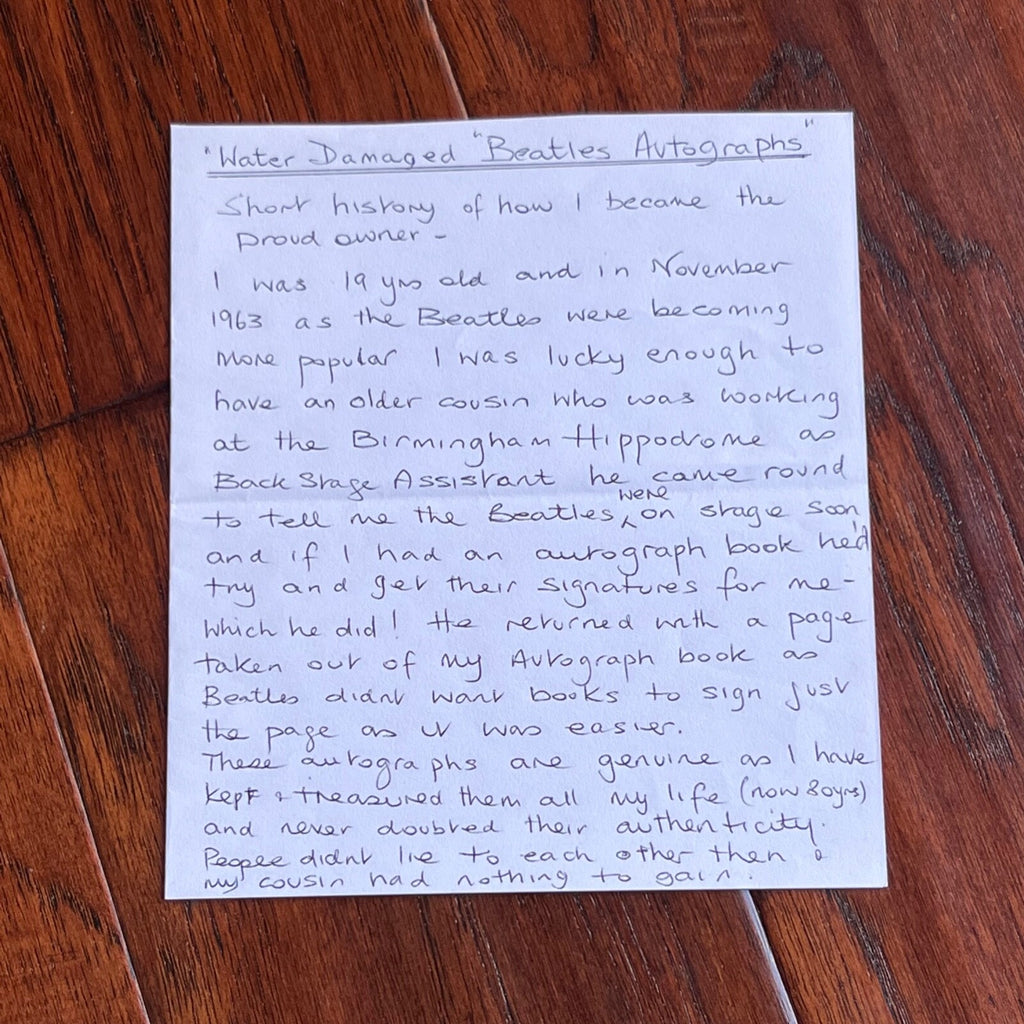 "Water Damaged "Beatles Autographs"
Short history of how I became the
proud owner -
I was 19 yrs old and in November
1963 as the Beatles were becoming
more popular I was lucky enough to
have an older cousin who was working
at the Birmingham Hippodrome as
Back Stage Assistant he came round
to tell me the Beatles were on stage soon
and if I had an autograph book he'd
try and get their signatures for me-
which he did! He returned with a page
taken out of my Autograph book as
Beatles didnt want books to sign just
the page as it was easier.
These autographs are genuine as I have
kept & treasured them all my life (now 80yrs)
and never doubted their authenticity.
People didnt lie to each other then &
my cousin had nothing to gain.